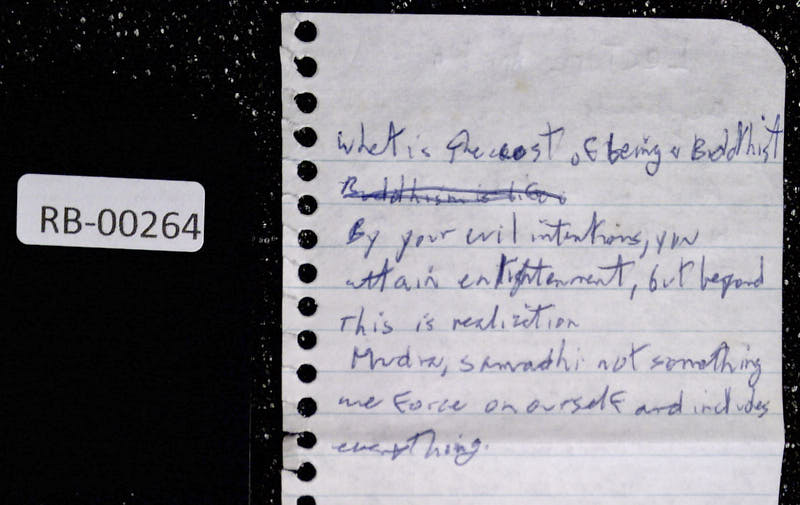 RB-00264
What is the cost of being a Buddhist
Buddhism is life
By your evil intentions, you
attain enlightenment, but beyond
This is realiztion
Mudra, samadhi not something
we Force on ourself and includes
everything.